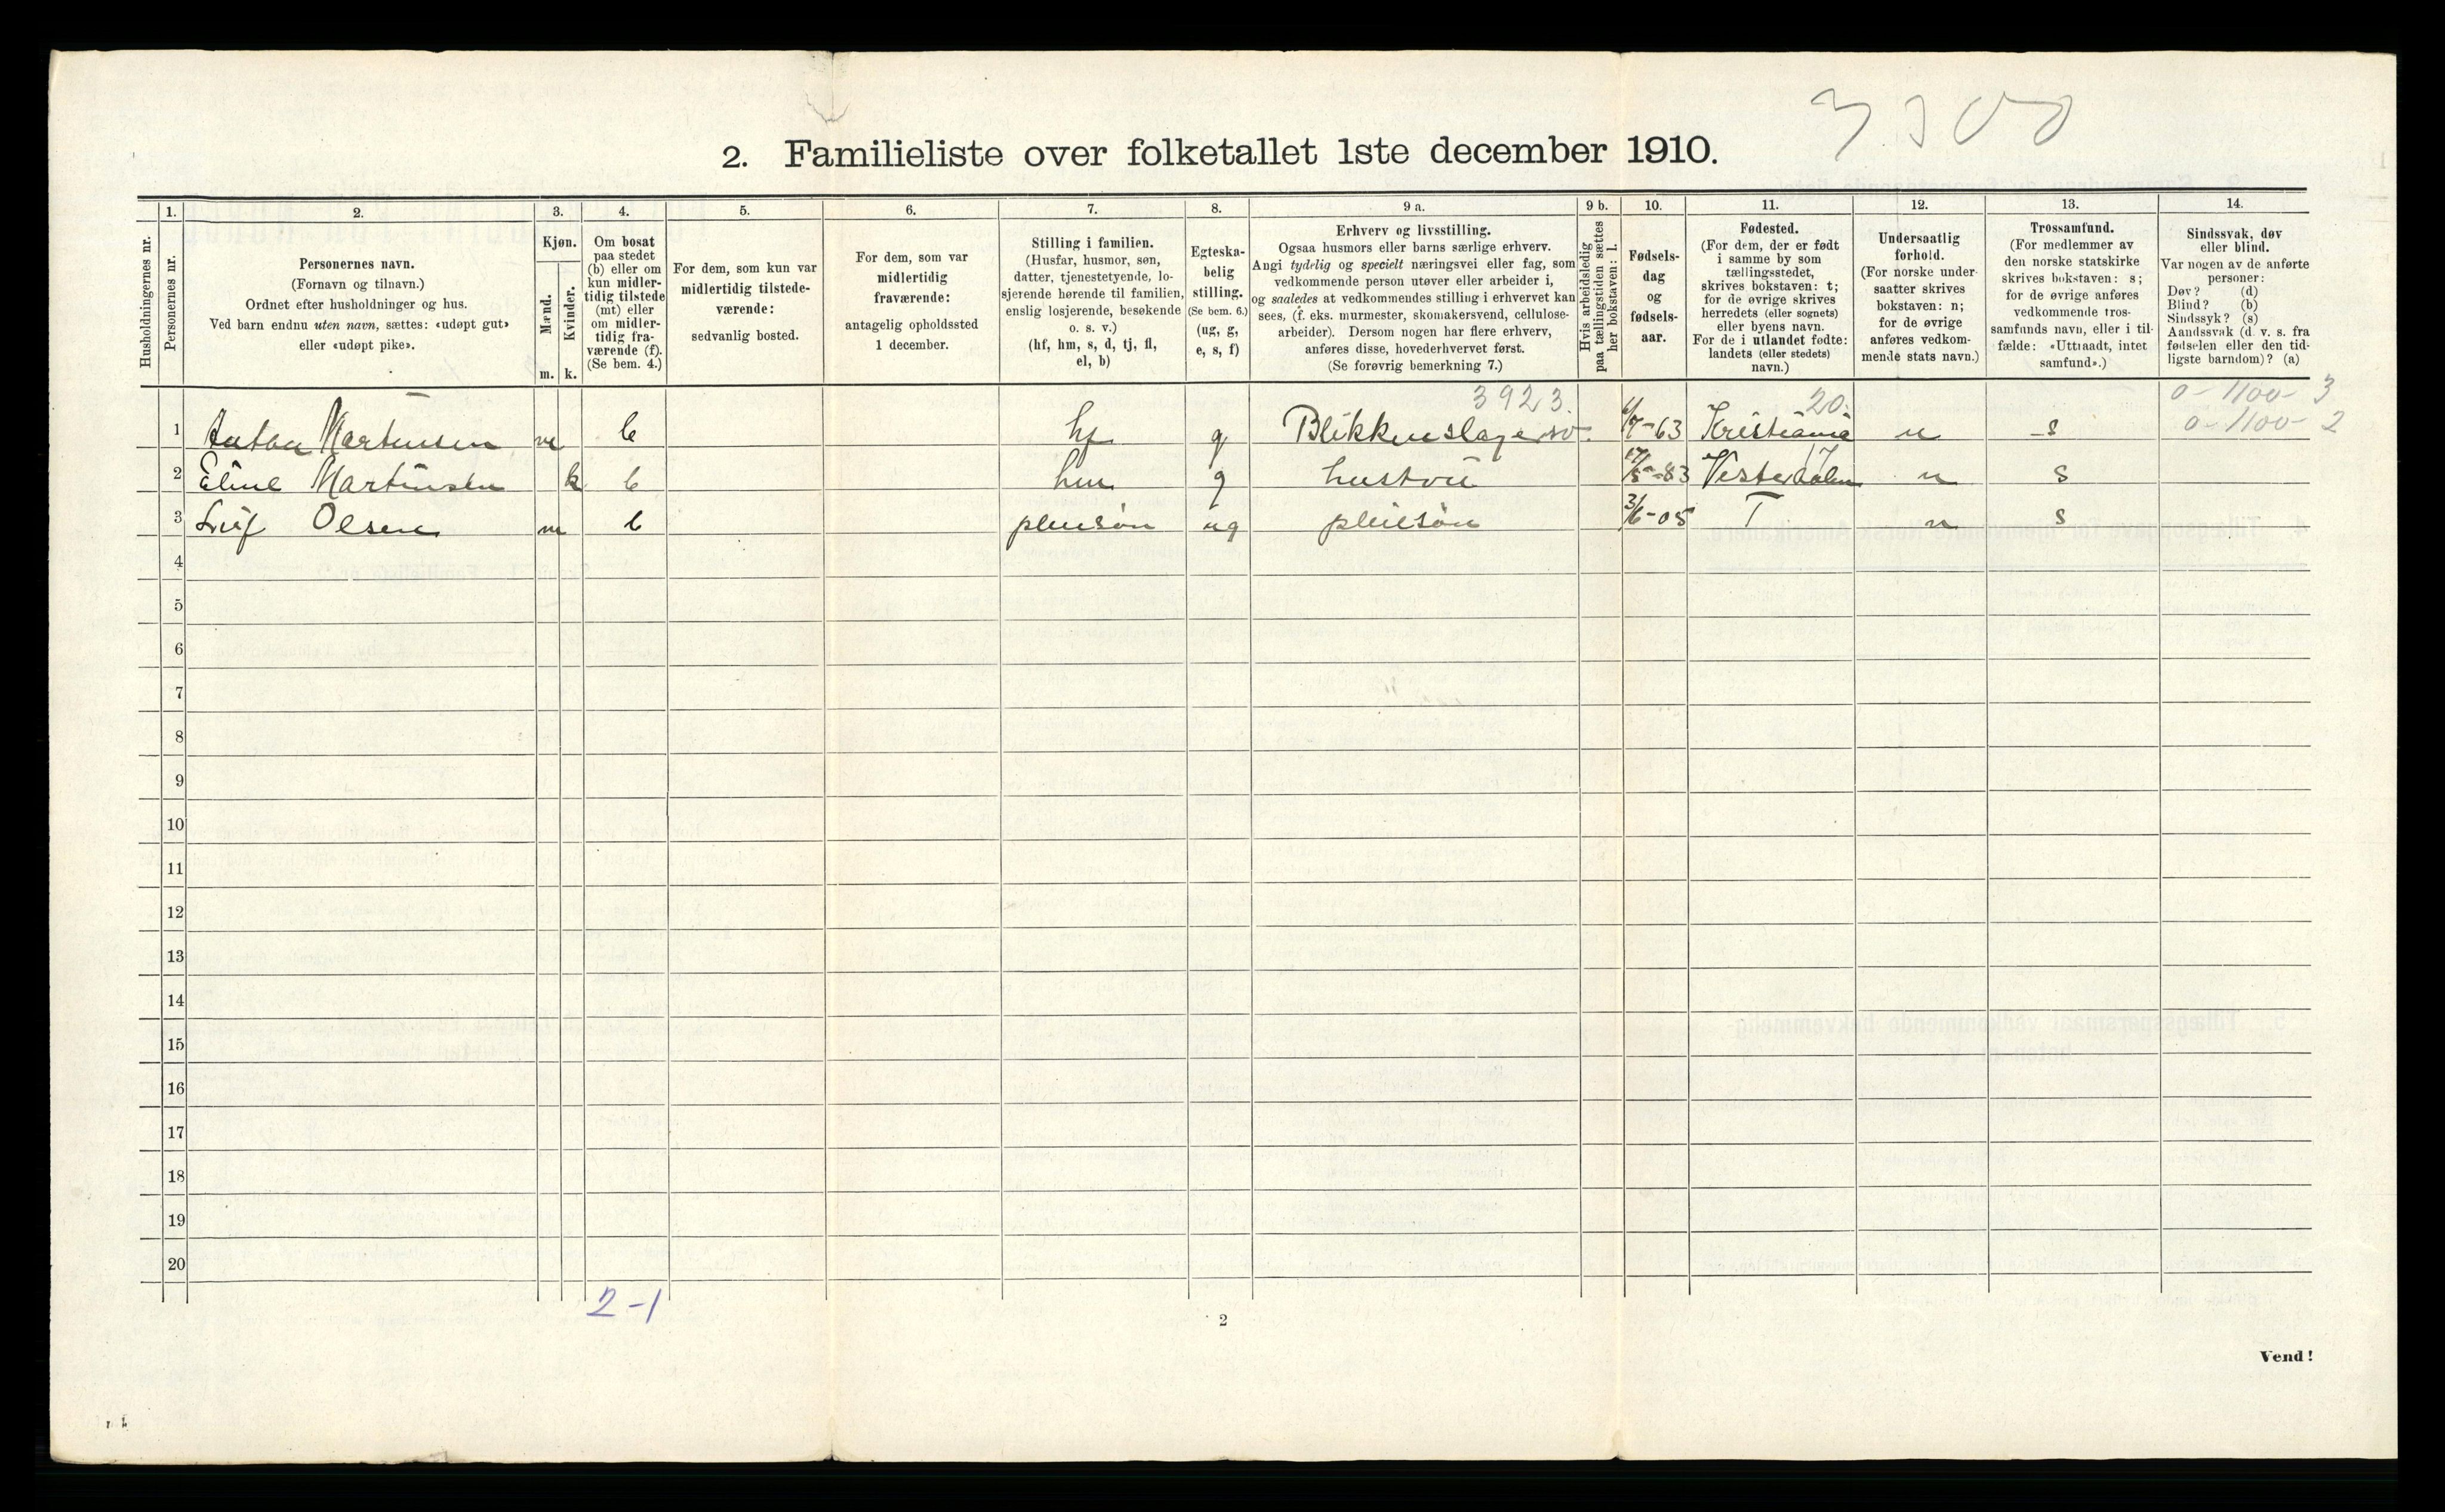 3300
2. Familieliste over folketallet 1ste december 1910.
Husholdningernes nr.
1.
Personernes nr.
2.
Personernes navn.
(Fornavn og tilnavn.)
Ordnet efter husholdninger og hus.
Ved barn endnu uten navn, sættes: «udøpt gut»
eller «udøpt pike».
3.
Kjøn.
Mænd.
Kvinder.
m. k.
4.
Om bosat
paa stedet
(b) eller om
kun midler-
tidig tilstede
(mt) eller
om midler-
tidig fra-
værende (f).
(Se bem. 4.)
5.
For dem, som kun var
midlertidig tilstede-
værende:
sedvanlig bosted.
6.
For dem, som var
midlertidig
fraværende:
antagelig opholdssted
1 december.
7.
Stilling i familien.
(Husfar, husmor, søn,
datter, tjenestetyende, lo-
sjerende hørende til familien,
enslig losjerende, besøkende
o. s. v.)
(hf, hm, s, d, tj, fl,
el, b)
8.
Egteska-
belig
stilling.
(Se bem. 6.)
(ug, g,
e, s, f)
9 a.
Erhverv og livsstilling.
Ogsaa husmors eller barns særlige erhverv.
Angi tydelig og specielt næringsvei eller fag, som
vedkommende person utøver eller arbeider i,
og saaledes at vedkommendes stilling i erhvervet kan
sees, (f. eks. murmester, skomakersvend, cellulose-
arbeider). Dersom nogen har flere erhverv,
anføres disse, hovederhvervet først.
(Se forøvrig bemerkning 7.)
9 b.
Hvis arbeidsledig
paa tællingstiden sættes
her bokstaven: l.
10.
Fødsels-
dag
og
fødsels-
aar.
11.
Fødested.
(For dem, der er født
i samme by som
tællingsstedet,
skrives bokstaven: t;
for de øvrige skrives
herredets (eller sognets)
eller byens navn.
For de i utlandet fødte:
landets (eller stedets)
navn.)
12.
Undersaatlig
forhold.
(For norske under-
saatter skrives
bokstaven: n;
for de øvrige
anføres vedkom-
mende stats navn.)
13.
Trossamfund.
(For medlemmer av
den norske statskirke
skrives bokstaven: s;
for de øvrige anføres
vedkommende tros-
samfunds navn, eller i til-
fælde: «Uttraadt, intet
samfund».)
14.
Sindssvak, døv
eller blind.
Var nogen av de anførte
personer:
Døv? (d)
Blind? (b)
Sindssyk? (s)
Aandssvak (d. v. s. fra
fødselen eller den tid-
ligste barndom)? (a)
3923. 20. 0-1100-3
0-1100-2
1 Anton Martinsen m b hf g Blikkenslagersv. /7-63 Kristiania n s
2 Eline Martinsen k b hm g hustru 17/5-83 n s
3 Leif Olsen m b pleiesön ug pleiesön 3/6-05 T n s
4
5
6
7
8
9
10
11
12
13
14
15
16
17
18
19
20
2-1
2
Vend!